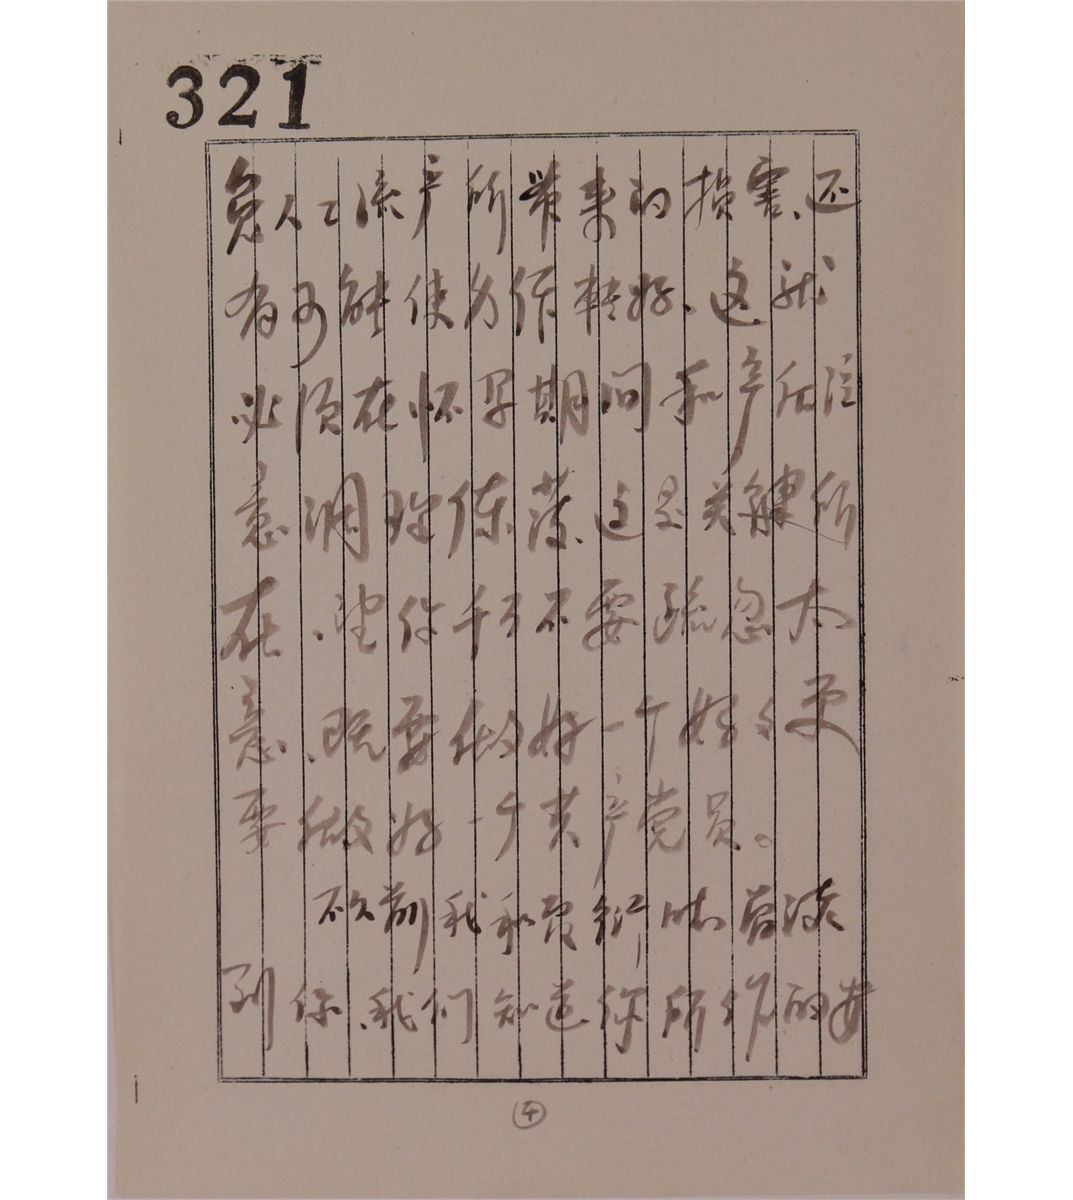 321
免人工流产所带来的损害、还
有可能使身体转好、这就
必须在怀孕期间和产后注
意调理保、这是关键所
在、望你千万不要疏忽大
意、既要做好一个妈妈更
要做好一个共产党员。
不久前我和时曾谈
到你、我们知道你所作的安
④